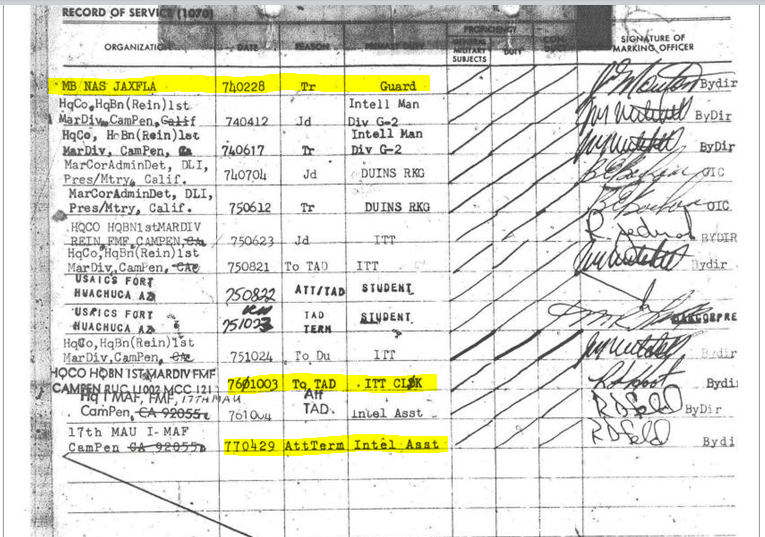 RECORD OF SERVICE (1070)
ORGANIZATION DATE REASON PROFICIENCY GENERAL MILITARY SUBJECTS DUTY CON DUCT SIGNATURE OF MARKING OFFICER
MB NAS JAXFLA 740228 Tr Guard Bydir
HqCo,HqBn(Rein)1st Intell Man
MarDiv,CamPen,Calif 740412 Jd Div G-2 ByDir
HqCo, HqBn(Rein)1st Intell Man
MarDiv, CamPen, Ca 740617 Tr Div G-2 ByDir
MarCorAdminDet, DLI,
Pres/Mtry, Calif. 740704 Jd DUINS RKG OIC
MarCorAdminDet, DLI,
Pres/Mtry, Calif. 750612 Tr DUINS RKG OIC
HQCO HQBN1stMARDIV
REIN FMF,CAMPEN,CA 750623 Jd ITT BYDIR
HqCo,HqBn(Rein)1st
MarDiv,CamPen, CA 750821 To TAD ITT Bydir
USAICS FORT
HUACHUCA AZ 750822 ATT/TAD STUDENT
USAICS FORT TAD STUDENT
HUACHUCA AZ TERM
HqCo,HqBn(Rein)1st
MarDiv,CamPen, Ca 751024 To Du ITT Bydir
HQCO HQBN 1ST MARDIV FMF
CAMPEN RUC 11002 MCC 121 761003 To TAD ITT CLSK Bydir
Hq I MAF, FMF, 17TH MAU Att
CamPen, CA 92055 761004 TAD. Intel Asst ByDir
17th MAU I-MAF
CamPen CA 92055 770429 AttTerm Intel Asst Bydi